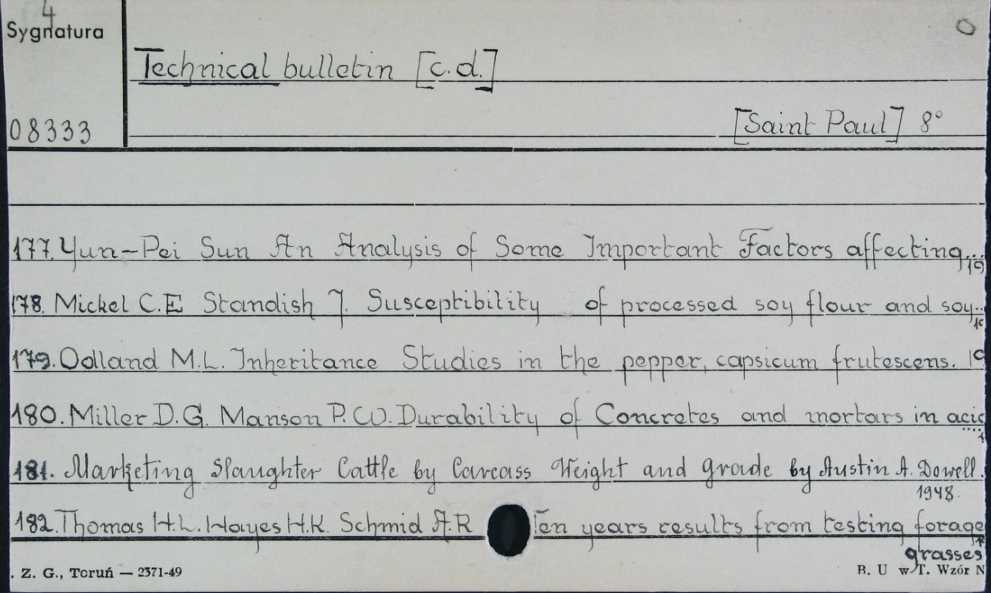 4
Sygnatura
Technical bulletin [c.d.]
08333
[Saint Paul] 8°
177. Yun-Pei Sun An Analysis of Some Important Factors affecting...
19
178. Mickel C.E Standish J. Susceptibility of processed soy flour and soy..
179. Odland M.L. Inheritance Studies in the pepper, capsicum frutescens. 19
180. Miller D.G. Manson P.W. Durability of Concretes and mortars in acid
181. Marketing Slaughter Cattle by Carcass Weight and grade by Austin A. Dowell.
1948.
182. Thomas H.L. Hayes H.K. Schmid A.R Ten years results from testing forage
grasses
. Z. G., Toruń — 2371-49
B. U w T. Wzór N